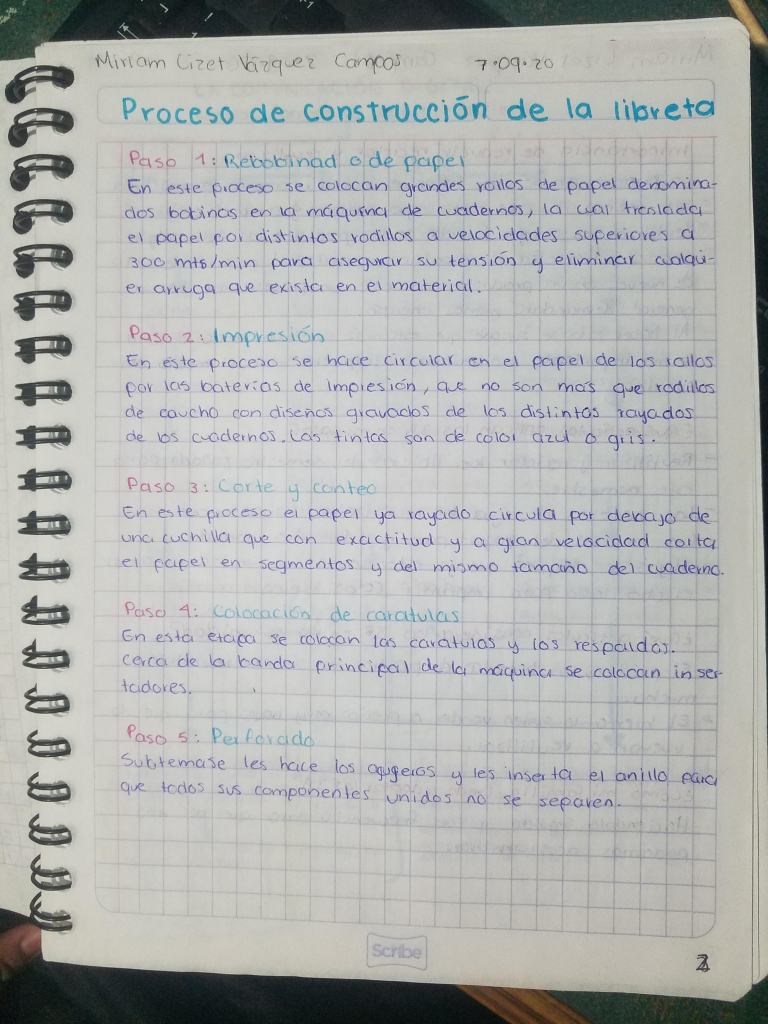 Miriam Lizet Vázquez Campos 7·09·20
Proceso de construcción de la libreta
Paso 1: Rebobinad o de papel
En este proceso se colocan grandes rollos de papel denomina-
dos bobinas en la máquina de cuadernos, la cual traslada
el papel por distintos rodillos a velocidades superiores a
300 mts/min para asegurar su tensión y eliminar cualqui-
er arruga que exista en el material.
Paso 2: Impresión
En este proceso se hace circular en el papel de los rollos
por las baterias de impresión, que no son mas que rodillos
de caucho con diseños gravados de los distintos rayados
de los cuadernos. Las tintas son de color azul o gris.
Paso 3: Corte y conteo
En este proceso el papel ya rayado circula por debajo de
una cuchilla que con exactitud y a gran velocidad corta
el papel en segmentos y del mismo tamaño del cuaderno.
Paso 4: Colocación de caratulas
En esta etapa se colocan las carátulas y los respaldos.
cerca de la banda principal de la máquina se colocan inser-
tadores.
Paso 5: Perforado
Subtemase les hace los agugeros y les inserta el anillo para
que todos sus componentes unidos no se separen.
Scribe